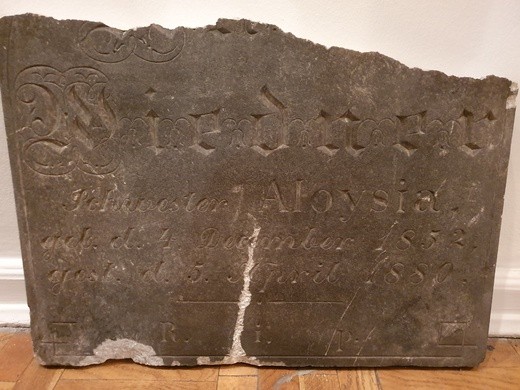 Schwester Aloysia,
geb. d. 4. December 1852.
gest. d. 5. April 1880.
R. i. p.